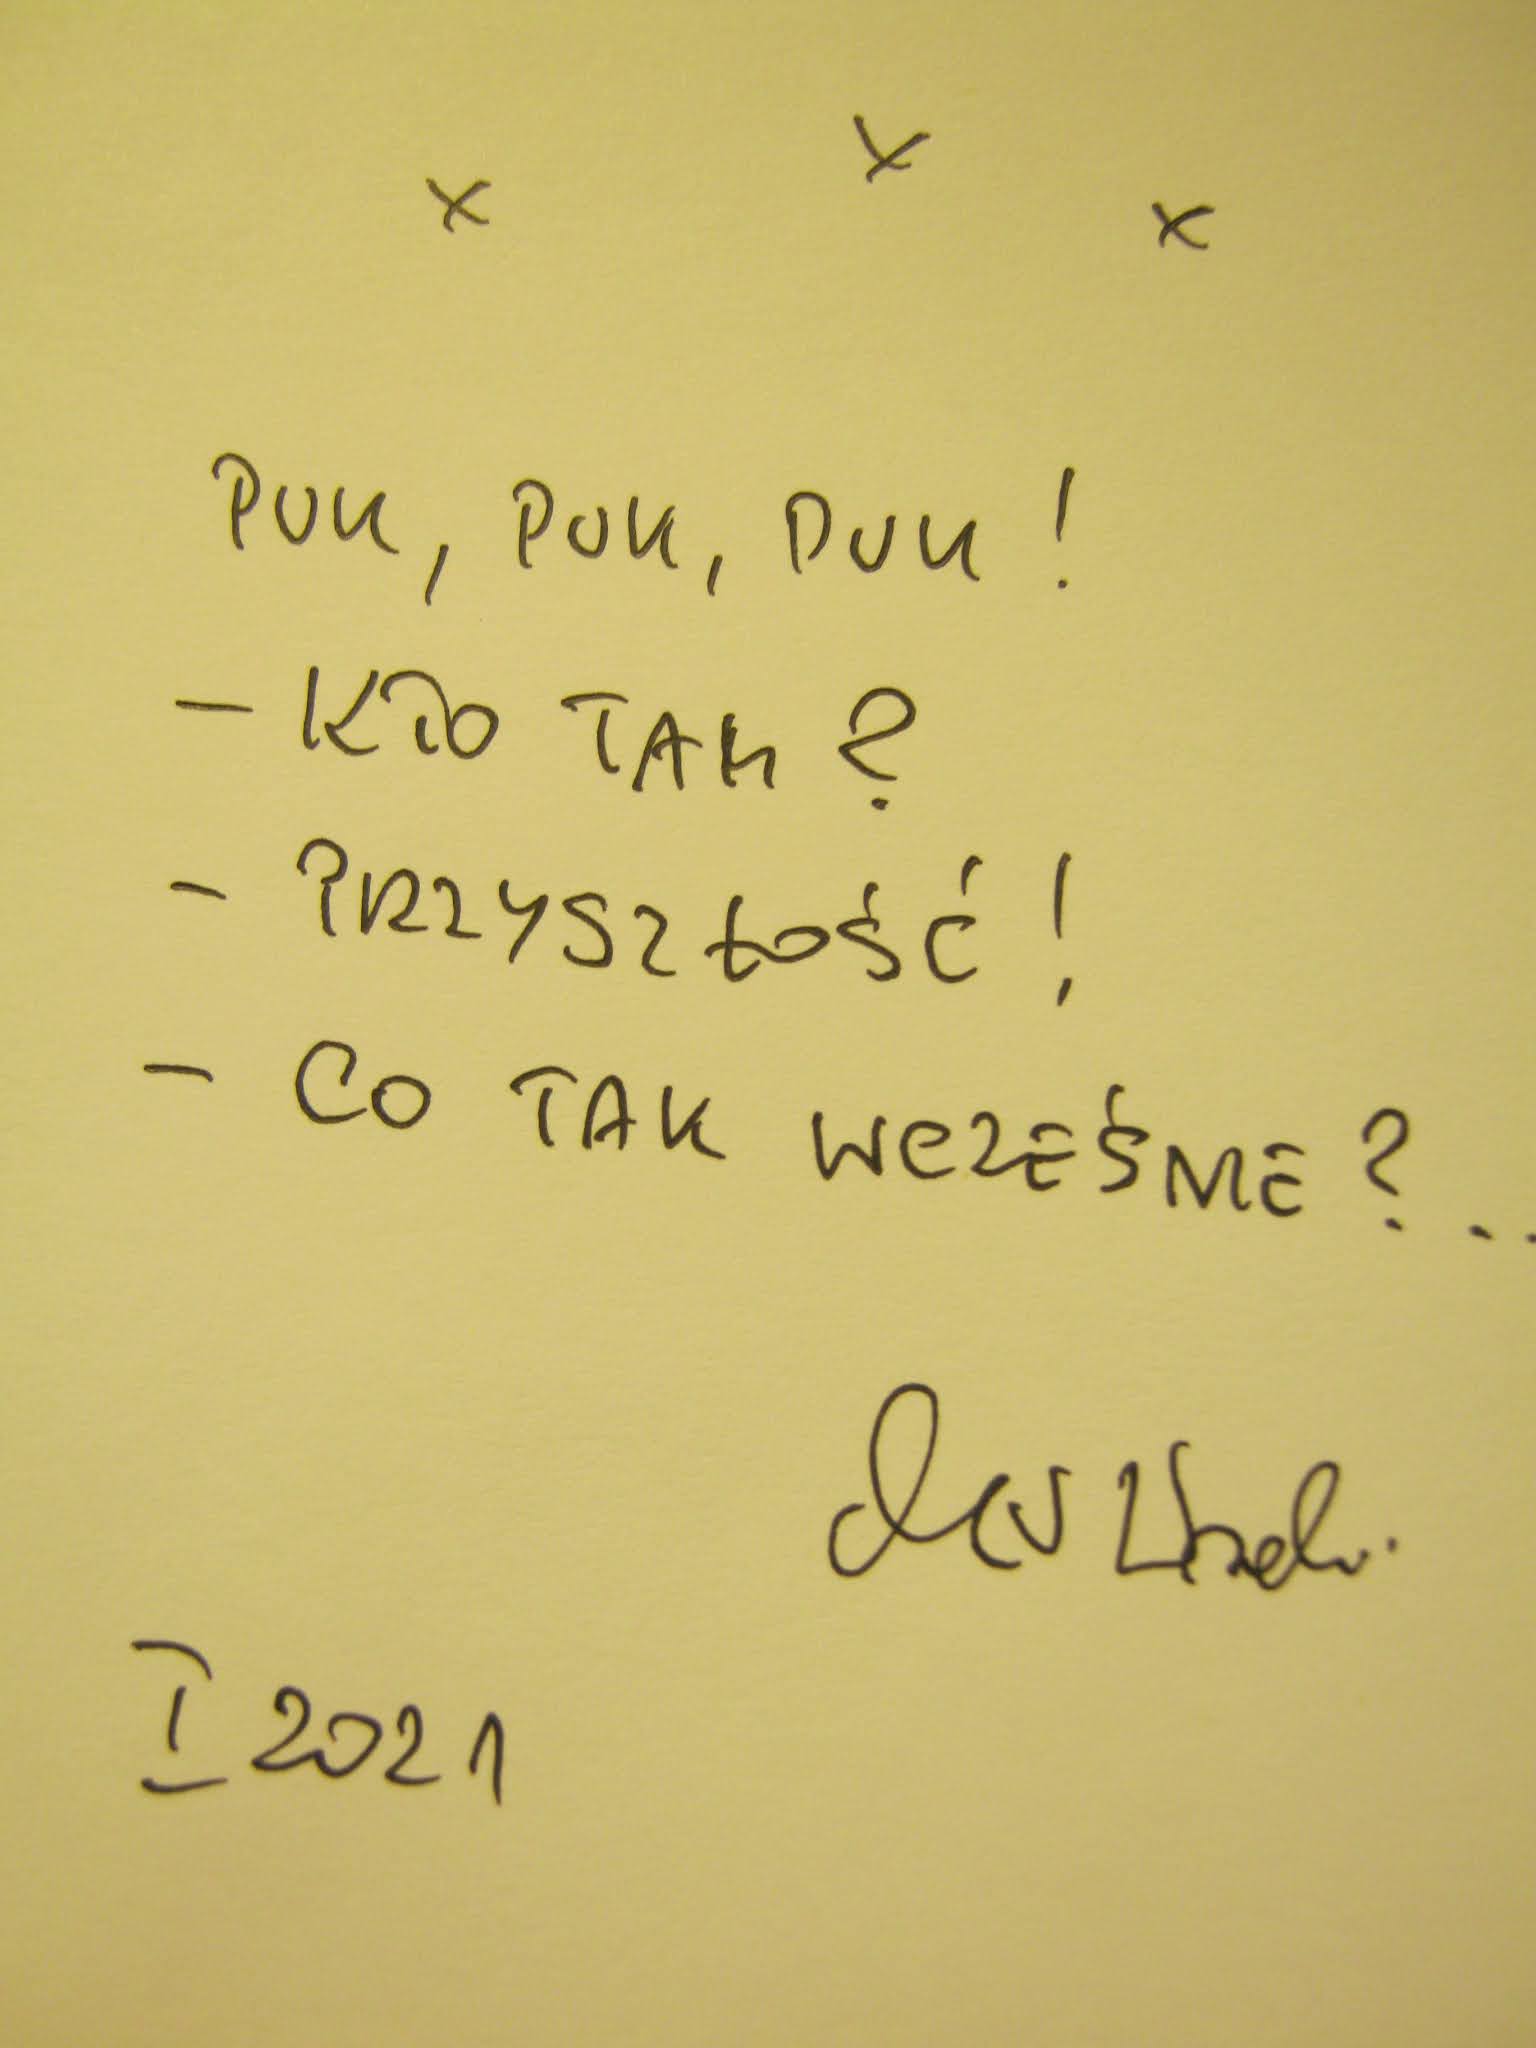 x x x
PUK, PUK, PUK!
- KTO TAK?
- PRZYSZŁOŚĆ!
- CO TAK WCZEŚNIE?..
I 2021